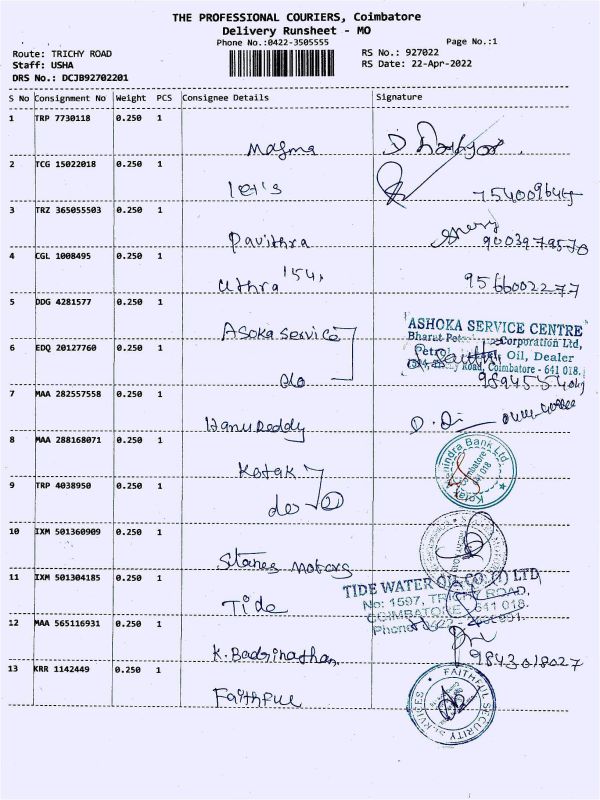 THE PROFESSIONAL COURIERS, Coimbatore
Delivery Runsheet - MO
Phone No.:0422-3505555
Page No.:1
Route: TRICHY ROAD
RS No.: 927022
Staff: USHA
RS Date: 22-Apr-2022
DRS No.: DCJB92702201
S No Consignment No Weight PCS Consignee Details Signature
1 TRP 7730118 0.250 1
Magma
2 TCG 15022018 0.250 1
let's
3 TRZ 365055503 0.250 1
Pavithra
4 CGL 1008495 0.250 1
Uthra '154,
9566002277
5 DDG 4281577 0.250 1
Asoka service
ASHOKA SERVICE CENTRE
Bharat Petro Corporation Ltd,
Oil, Dealer
Road, Coimbatore - 641 018.
6 EDQ 20127760 0.250 1
do
7 MAA 282557558 0.250 1
Hanu Reddy
8 MAA 288168071 0.250 1
Kotak
Bank Ltd
Coimbatore
641 018
9 TRP 4038950 0.250 1
do
10 IXM 501360909 0.250 1
Stanes motors
11 IXM 501304185 0.250 1
Tide
TIDE WATER OIL CO. (I) LTD
No: 1597, TRICHY ROAD,
COIMBATORE - 641 018.
12 MAA 565116931 0.250 1
K. Badrinathan
9843018027
13 KRR 1142449 0.250 1
Faithful
FAITHFUL SECURITY SERVICES